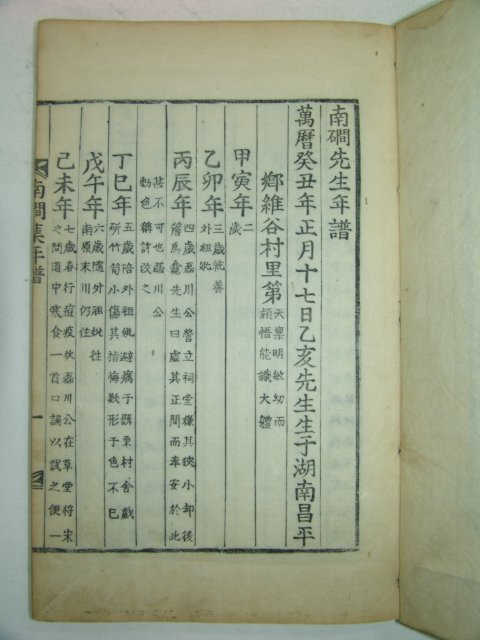 南磵先生年譜
萬曆癸丑年正月十七日乙亥先生生于湖南昌平
鄕維谷村里第天稟明敏幼而
穎悟能識大體
甲寅年二
歲
乙卯年三歲就養
外祖妣
丙辰年四歲磊川公營立祠堂嫌其狹小却後
簷爲龕先生曰虛其正間而奉安於此
甚不可也磊川公
動色稱訝改之
丁巳年五歲陪外祖妣避癘于縣東村舍戲
斫竹筍小傷其指悔歎形于色不已
戊午年六歲隨外祖妣往
南原末川仍住
己未年七歲春行痘疫秋磊川公在草堂將宋
之問道中寒食一首口誦以試之便一
南磵集年譜
一